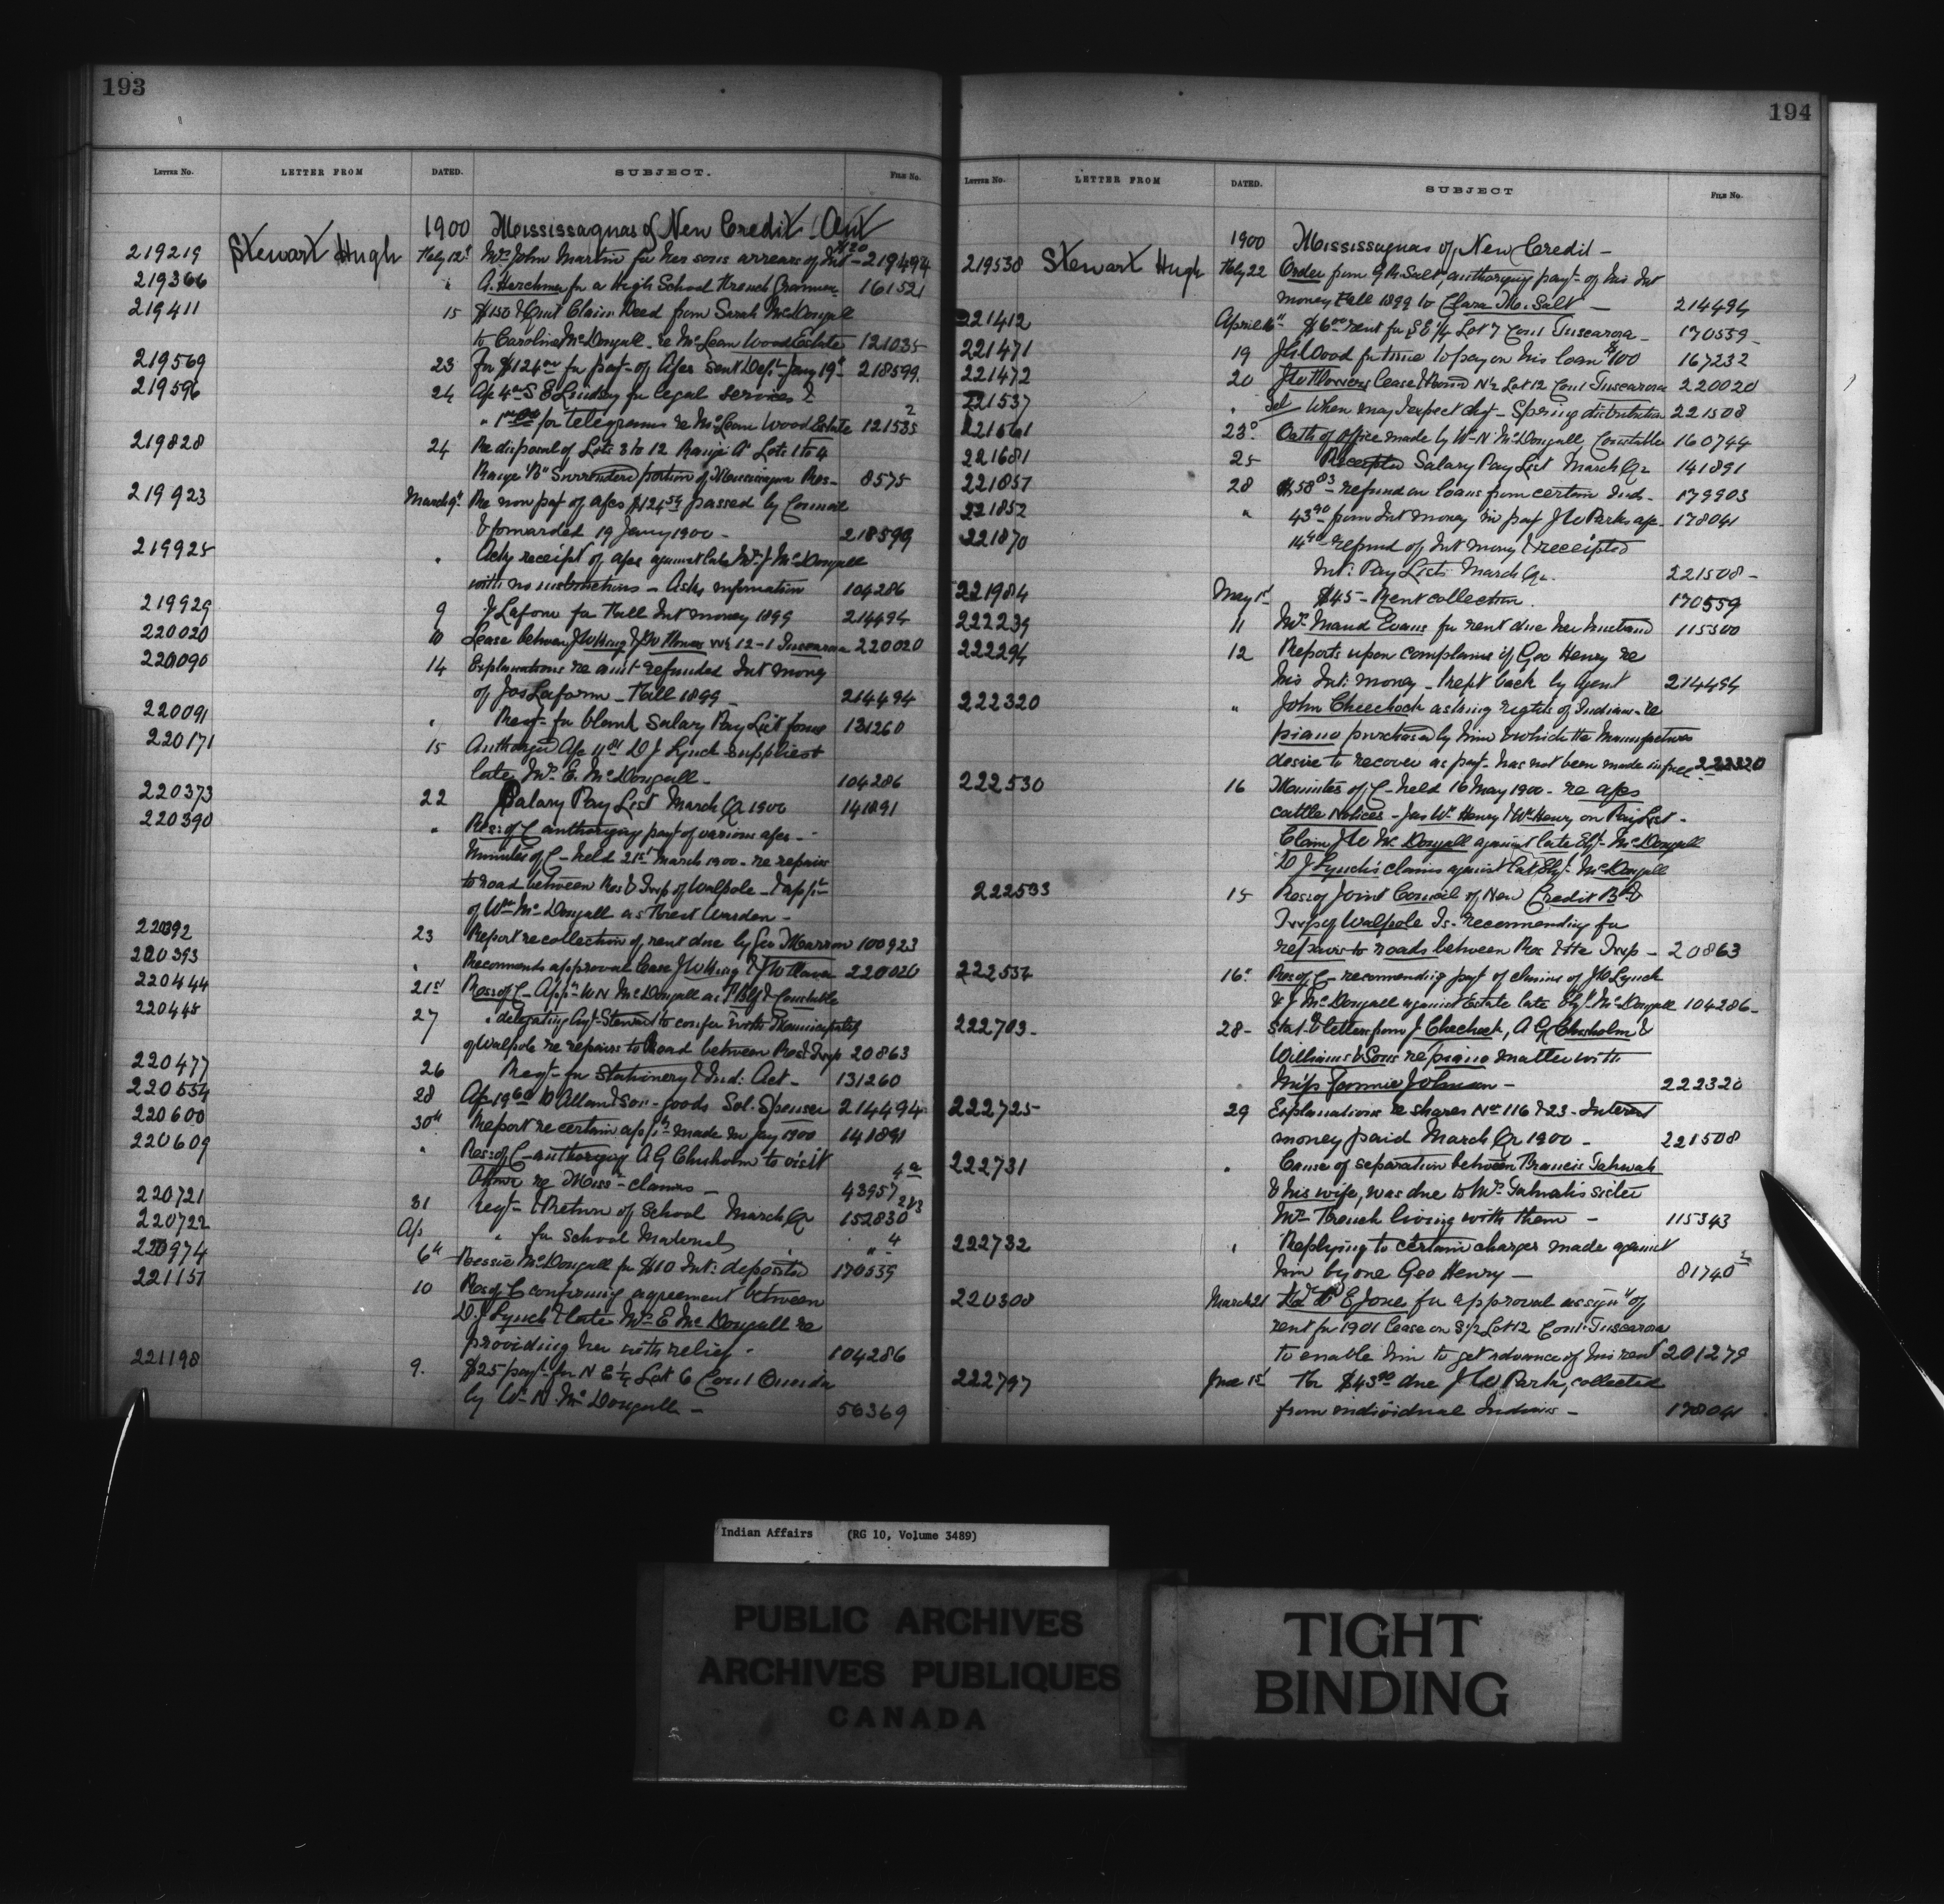 193
LETTER No. LETTER FROM DATED. SUBJECT. FILE No.
1900 Mississaguas of New Credit. Ont
219219 Stewart Hugh Feby 12 Mrs John Martin for her sons arrears of Int - 219494
219366 " A. Herchmer for a High School French Grammar 161521
219411 15 $150 & Quit Claim Deed from Sarah McDougall
to Caroline McDougall re McLean Wood Estate 121035
219569 23 For $124 for payt of a/cs sent Dept Jany 19th 218599
219596 24 Ap 4 S E Lindsay for legal services &
" for telegrams re McLean Wood Estate 121535
219828 24 Re disposal of Lots 3 to 12 Range A Lots 1 to 4
Range "B" Surrendered portion of Mississagua Res- 8575
219923 March 9 Re non pay of a/cs $124 passed by Council
& forwarded 19 Jany 1900 - 218599
219925 " Ackg receipt of a/cs against late Mrs J McDougall
with no instructions - Asks information 104286
219929 9 J Laform for Fall Int money 1899 214494
220020 10 Lease between J W King & J W 12-1 Tuscarora 220020
220090 14 Explanations re amt refunded Int money
of Jos Laform - Fall 1899 214494
220091 " Reqt for blank Salary Pay List forms 131260
220171 15 D J Lynch supplies to
late Mrs E. McDougall - 104286
220373 22 Salary Pay List March Qr 1900 141891
220390 " Res: of C authorizing payt of various a/cs -
Minutes of C - held 21st March 1900 - re repairs
to road between Res & Twp of Walpole - & appt
of Wm McDougall as Forest Warden -
220392 23 Report re collection of rent due by Geo 100923
220393 " Recommends approval Lease J W King & J W 220020
220444 21st Res: of C - App W N McDougall as & Constable
220445 27 " delegating Agt Stewart to confer with Municipality
of Walpole re repairs to Road between Res & Twp 20863
220477 26 Reqt for Stationery & Ind: Act - 131260
220554 28 Ap 19 Allan & Son - goods Sol. Spenser 214494
220600 30th Report re certain made in Jany 1900 141891
220609 " Res: of C - authorizing A G Chisholm to visit
Ottawa re Miss - claims - 43957
220721 31 Reqt & Return of School March Qr 152830
220722 Ap " for School Materials " 4
220974 6th Bessie McDougall for $10 Int: deposited 170559
221151 10 Res of C confirming agreement between
D. J Lynch & late Mrs E McDougall re
providing her with relief - 104286
221198 9. $25 payt for N E ¼ Lot 6 Con 1 Oneida
by Wm N. McDougall - 56369
194
LETTER No. LETTER FROM DATED. SUBJECT FILE No.
1900 Mississaguas of New Credit -
219538 Stewart Hugh Feby 22 Order from G R Salt, authorizing payt of his Int
money Fall 1899 to Clara M. Salt - 214494
221412 April 16th $6 rent for S E ¼ Lot 7 Con 1 Tuscarora - 170559
221471 19 J A Wood for time to pay on his loan $100 167232
221472 20 Lease & Bond N½ Lot 12 Con 1 Tuscarora 220020
221537 " When may I expect chq - Spring distribution 221508
221561 23d Oath of office made by Wm N McDougall, Constable 160744
221681 25 Receipted Salary Pay List March Qr 141891
221857 28 $58 refund on loans from certain Inds - 179903
221852 " 43 from Int money in pay J W Parks a/c - 178041
221870 14 refund of Int money & receipted
Int: Pay Lists March Qr. 221508 -
221984 May 1st $45 - Rent collection. 170559
222239 11 Mrs Maud Evans for rent due her husband 115300
222294 12 Reports upon complaint of Geo Henry re
his Int: money - kept back by Agent 214494
222320 " John Cheechock asking rights of Indians - re
piano purchased by him & which the Manufacturer
desire to recover as payt has not been made in full 222320
222530 16 Minutes of C - held 16 May 1900 - re a/cs
cattle Notices - Jas W Henry & Wm Henry on Pay List -
Claim J W McDougall against late Eliz. McDougall
D J Lynch's claims against late Eliz. McDougall
222533 15 Res: of Joint Council of New Credit Bd &
Twp of Walpole Is - recommending for
repairs to roads between Res & the Twp - 20863
222534 16th Res of C - recommending payt of claims of J Lynch
& J McDougall against Estate late Eliz. McDougall 104286 -
222703 - 28 - & letters from J Chechock, A G Chisholm &
Williams & Sons re piano matter with
Miss Fannie Johnson - 222320
222725 29 Explanations re shares Nos 116 & 23 - Interest
money paid March Qr 1900 - 221508
222731 " Cause of separation between Francis Tahwah
& his wife, was due to Mrs Tahwah's sister
Mrs French living with them - 115343
222732 " Replying to certain charges made against
him by one Geo Henry - 81740
220308 March 21 E Jones for approval assignt of
rent for 1901 Lease on S½ Lot 12 Con 1 Tuscarora
to enable him to get advance of his rent 201279
222797 June 15 The $43 due J W Park, collected
from individual Indians - 178041
Indian Affairs (RG 10, Volume 3489)
PUBLIC ARCHIVES
ARCHIVES PUBLIQUES
CANADA
TIGHT
BINDING